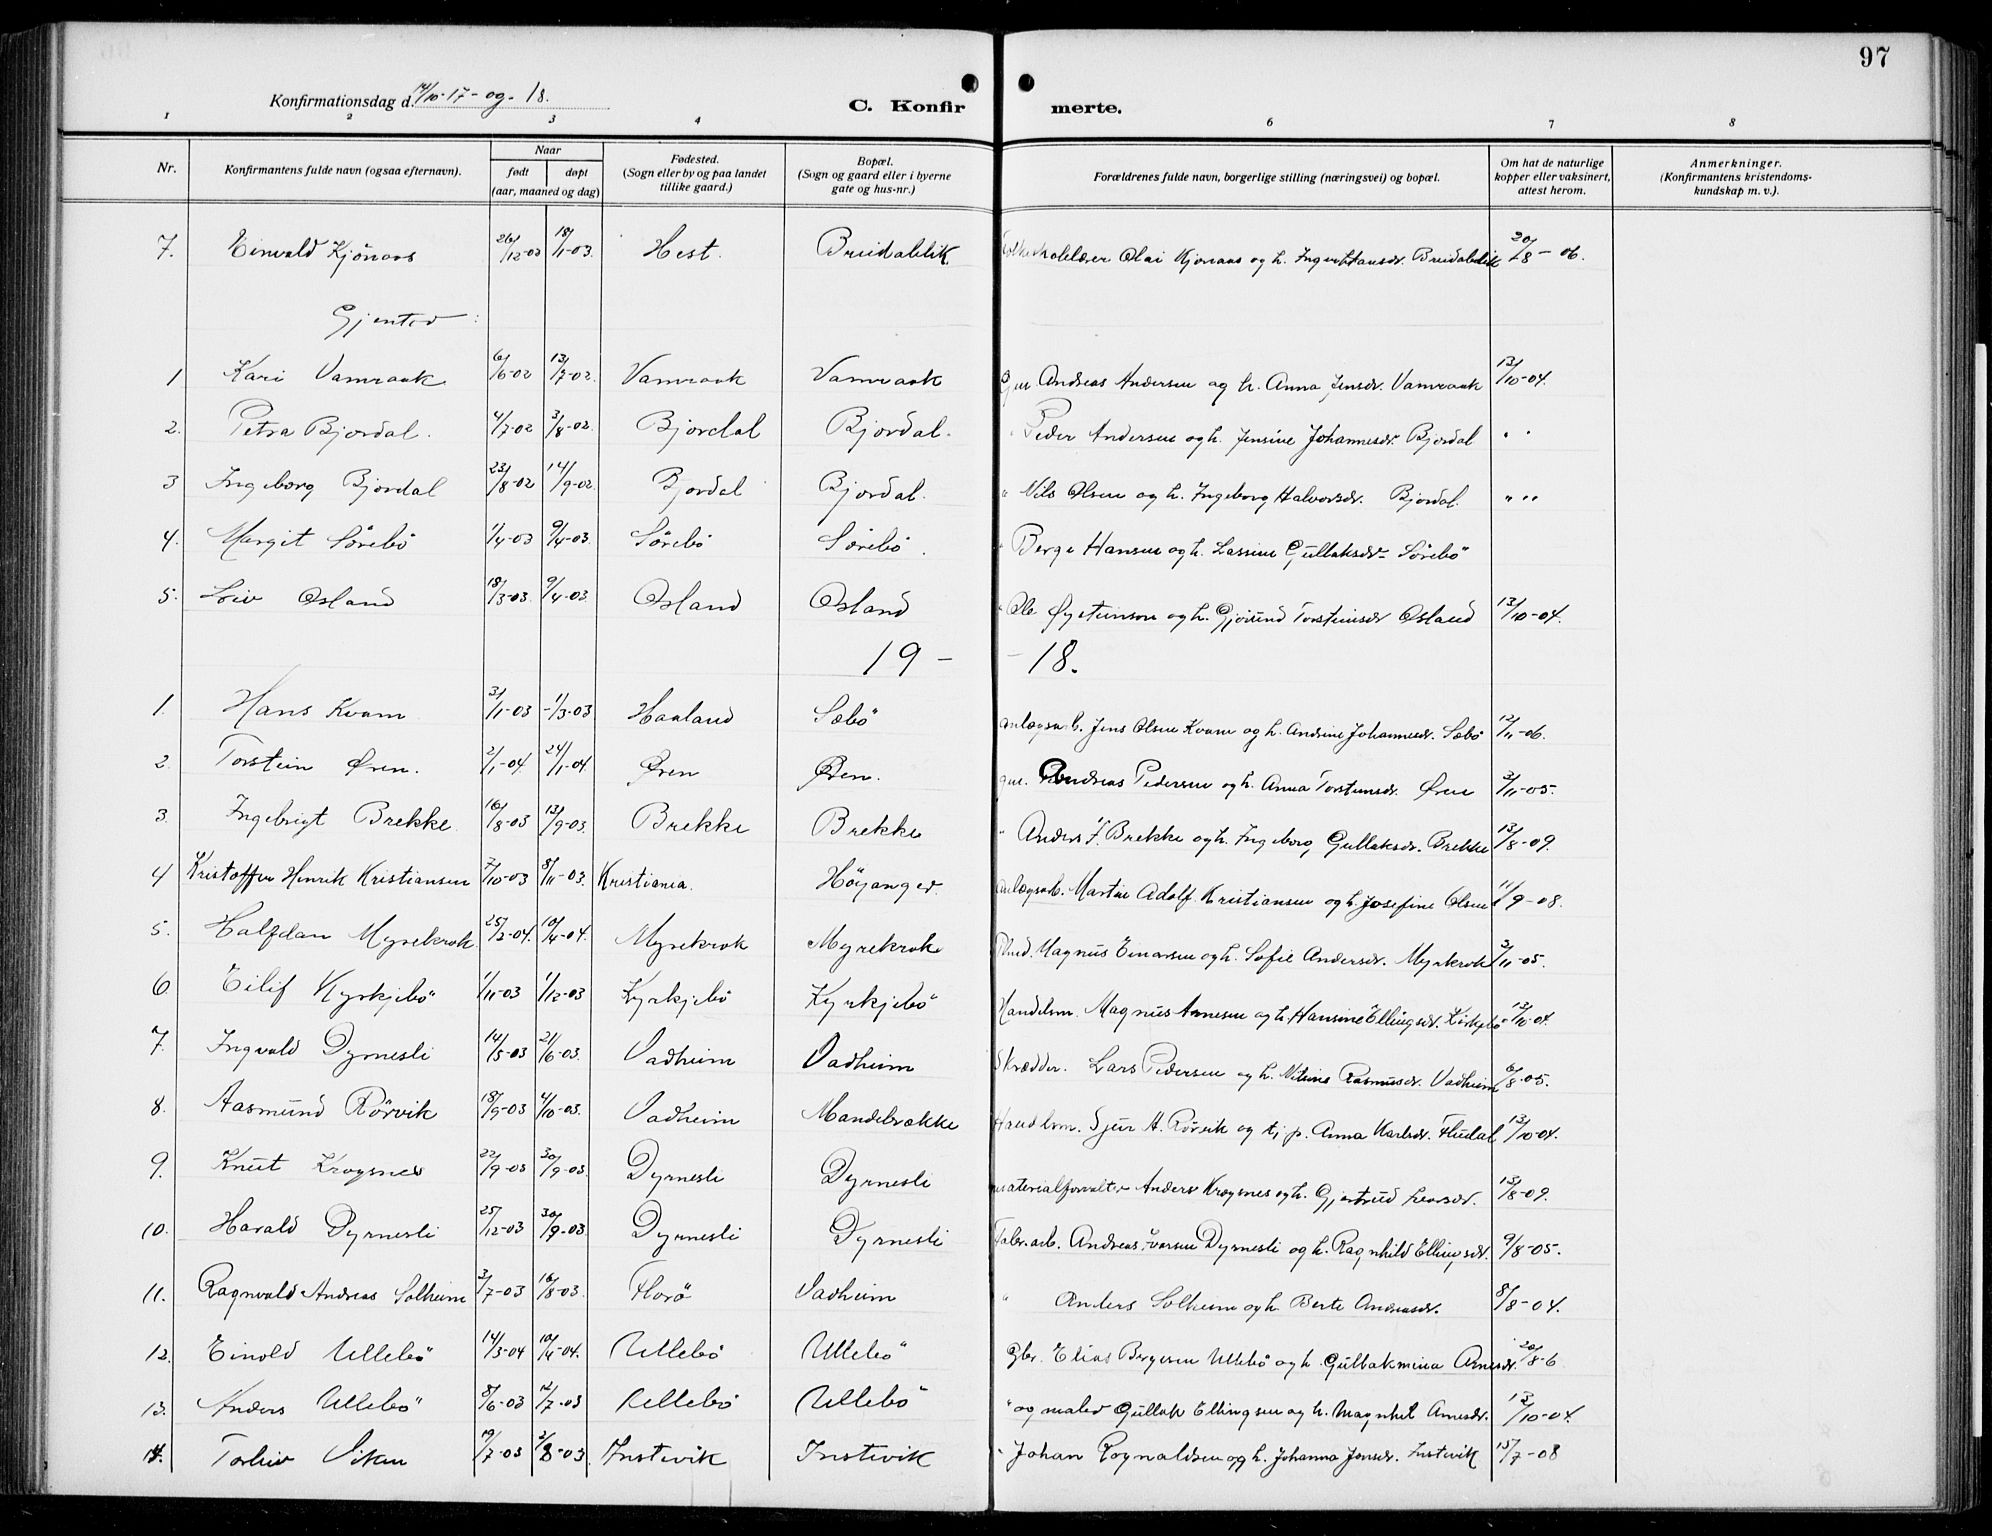 97
Konfirmationsdag d. 14/10-17- og - 18.
C. Konfir merte.
1 2 3 4 6 7 8
Nr. Konfirmantens fulde navn (ogsaa efternavn). Naar født døpt (aar, maaned og dag) Fødested. (Sogn eller by og paa landet tillike gaard.) Bopæl. (Sogn og gaard eller i byerne gate og hus-nr.) Forældrenes fulde navn, borgerlige stilling (næringsvei) og bopæl. Om hat de naturlige kopper eller vaksinert, attest herom. Anmerkninger. (Konfirmantens kristendoms-kundskap m. v.).
7. Einvald Kjönaas 26/12-02 18/1-03. Hest. Breidablik Olai Kjönaas og h. Inger Hansdr. Breidablik 20/8-06.
Gjenter:
1 Kari Vamraak 6/6-02 13/7-02. Vamraak Vamraak Gm. Andreas Andersen og h. Anna Jensdr. Vamraak 13/10-04.
2. Petra Bjordal. 4/7-02 3/8-02. Bjordal Bjordal. " Peder Andersen og h. Jensine Johannesdr. Bjordal " "
3 Ingeborg Bjordal 23/8-02 14/9-02. Bjordal Bjordal. " Nils Olsen og h. Ingeborg Halvorsdr. Bjordal. " "
4. Margit Sörebö 1/4-03 9/4-03. Sörebö Sörebö. " Berge Hansen og h. Lassine Gullaksdr. Sörebö
5. Liv Osland 18/3-03 9/4-03. Osland Osland " Ole Øysteinson og h. Gjörund Torsteinsdr Osland 13/10-04.
19 - - 18.
1. Hans Kvam 3/1-03 1/3-03 Haaland Sæbö anlægsarb. Jens Olsen Kvam og h. Andrine Johannesdr. Sæbö 12/11-06.
2. Torstein Øren. 2/1-04. 24/1-04. Øren Øren. gm. Andreas Pedersen og h. Anna Torsteinsdr. Øren 3/11-05.
3. Ingebrigt Brekke 16/8-03 13/9-03. Brekke Brekke " Anders I. Brekke og h. Ingeborg Gullaksdr. Brekke 13/8-09.
4 Kristoffer Henrik Kristiansen 7/10-03 8/11-03. Kristiania. Höyanger. anlægsarb. Martin Adolf Kristiansen og h. Josefine Olsen 11/9-08.
5. Halfdan Myrekrok 25/3-04. 10/4-04. Myrekrok Myrekrok Magnus Einarsen og h. Sofie Andersdr. Myrekrok 3/11-05.
6 Eilif Kyrkjebö 1/11-03 1/12-03 Kyrkjebö Kyrkjebö Handelsm. Magnus Arnesen og h. Hansine Ellingsdr. Kirkebö 13/10-04.
7. Ingvald Dyrnesli 14/5-03 21/6-03. Vadheim Vadheim Skrædder. Lars Pedersen og h. Nilsine Rasmusdr. Vadheim 6/8-05.
8. Aasmund Rörvik 18/9-03 4/10-03. Vadheim Mandebrække Handelsm. Sjur A. Rörvik og tj. p. Anna Karlsdr. Flidal 13/10-04.
9. Knut Krogsnes 22/9-03 30/9-03. Dyrnesli Dyrnesli materialforvalter Anders Krogsnes og h. Gjertrud Larsdr. 13/8-09.
10. Harald Dyrnesli 25/12-03 30/9-03. Dyrnesli Dyrnesli Fabr. arb. Andreas Ivarsen Dyrnesli og h. Ragnhild Ellingsdr. 9/8-05.
11. Ragnvald Andreas Solheim 3/7-03 16/8-03. Florö Vadheim " Anders Solheim og h. Berte Andreasdr. 8/8-04.
12. Einold Ullebö 14/3-04 10/4-04. Ullebö Ullebö Gbr. Elias Bergesen Ullebö og h. Gullakmina Arnesdr. 20/8-6
13. Anders Ullebö 8/6-03 12/7-03 Ullebö Ullebö " og maler Gullak Ellingsen og h. Magnhil Arnesdr. 13/10-04.
14. Torleiv Viken 19/7-03 2/8-03. Instevik Instevik " Johan Rognaldsen og h. Johanna Jonsdr. Instevik 15/7-08